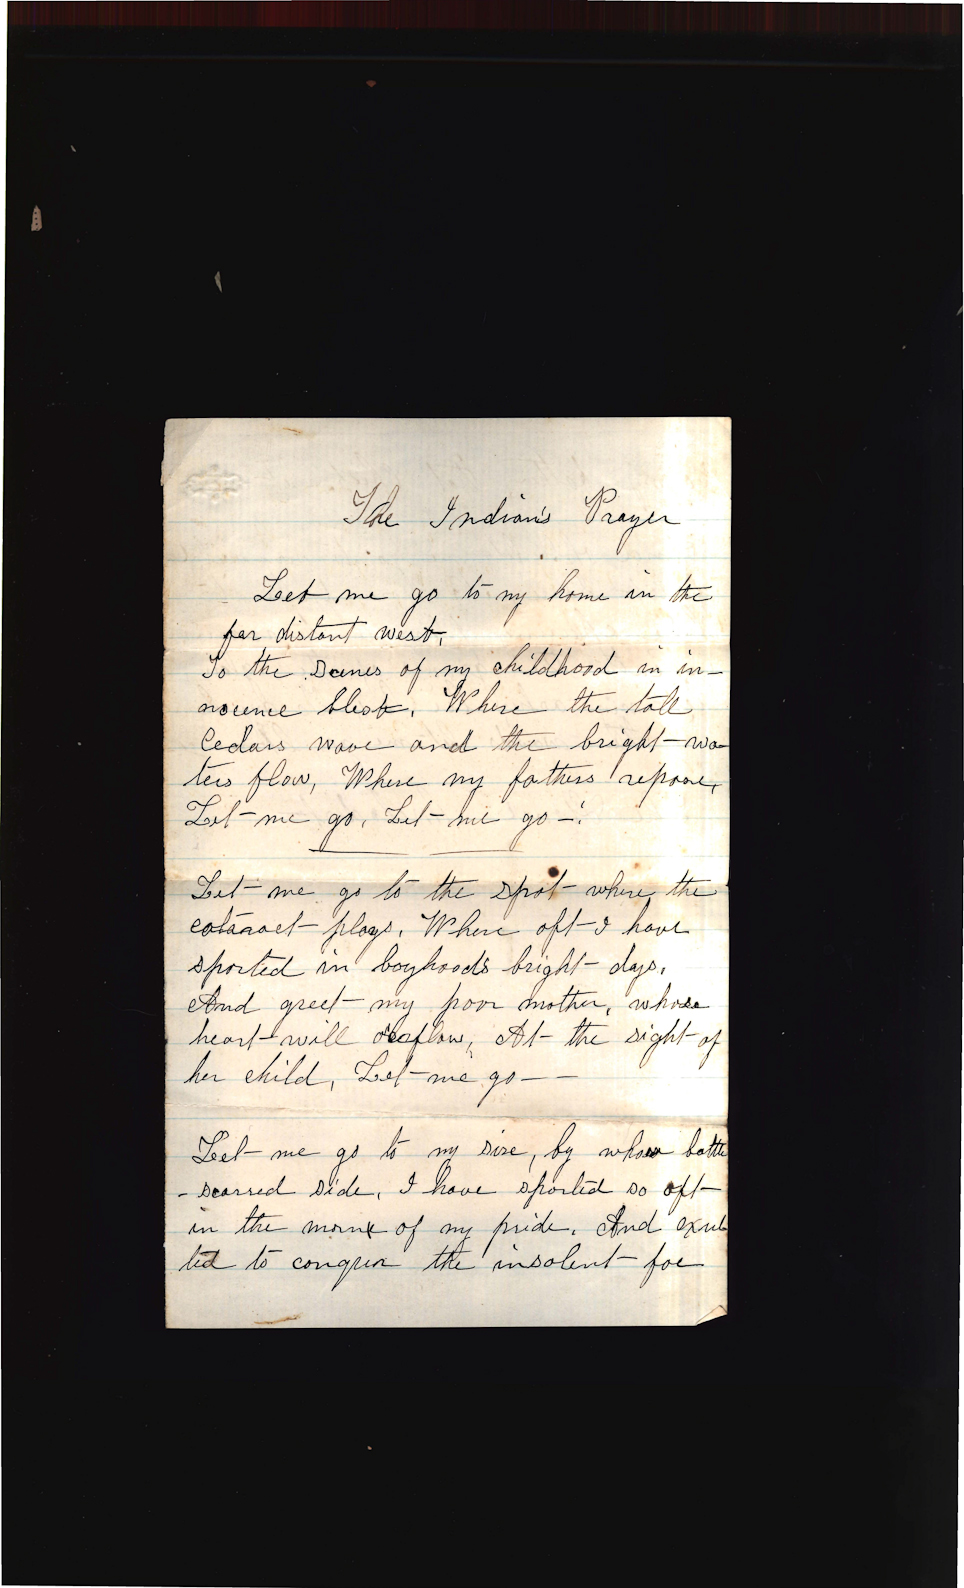 The Indian's Prayer
Let me go to my home in the
far distant west.
To the scenes of my childhood in in-
nocence blest. Where the tall
Cedars wave and the bright wa-
ters flow, Where my fathers repose,
Let me go, Let me go -!
Let me go to the spot where the
cataract plays. Where oft I have
sported in boyhoods bright days.
And greet my poor mother, whose
heart will overflow, At the sight of
her child, Let me go - -
Let me go to my sire, by whose battle
- scarred side, I have sported so oft
in the morn of my pride. And exul
ted to conquer the insolent foe